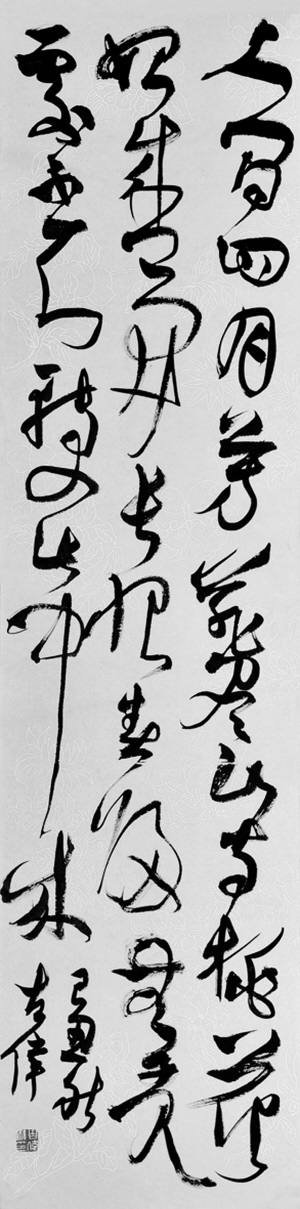 人間四月芳菲盡山寺桃花
始盛開長恨春歸無覓
處不知轉入此中來
己丑秋
偉